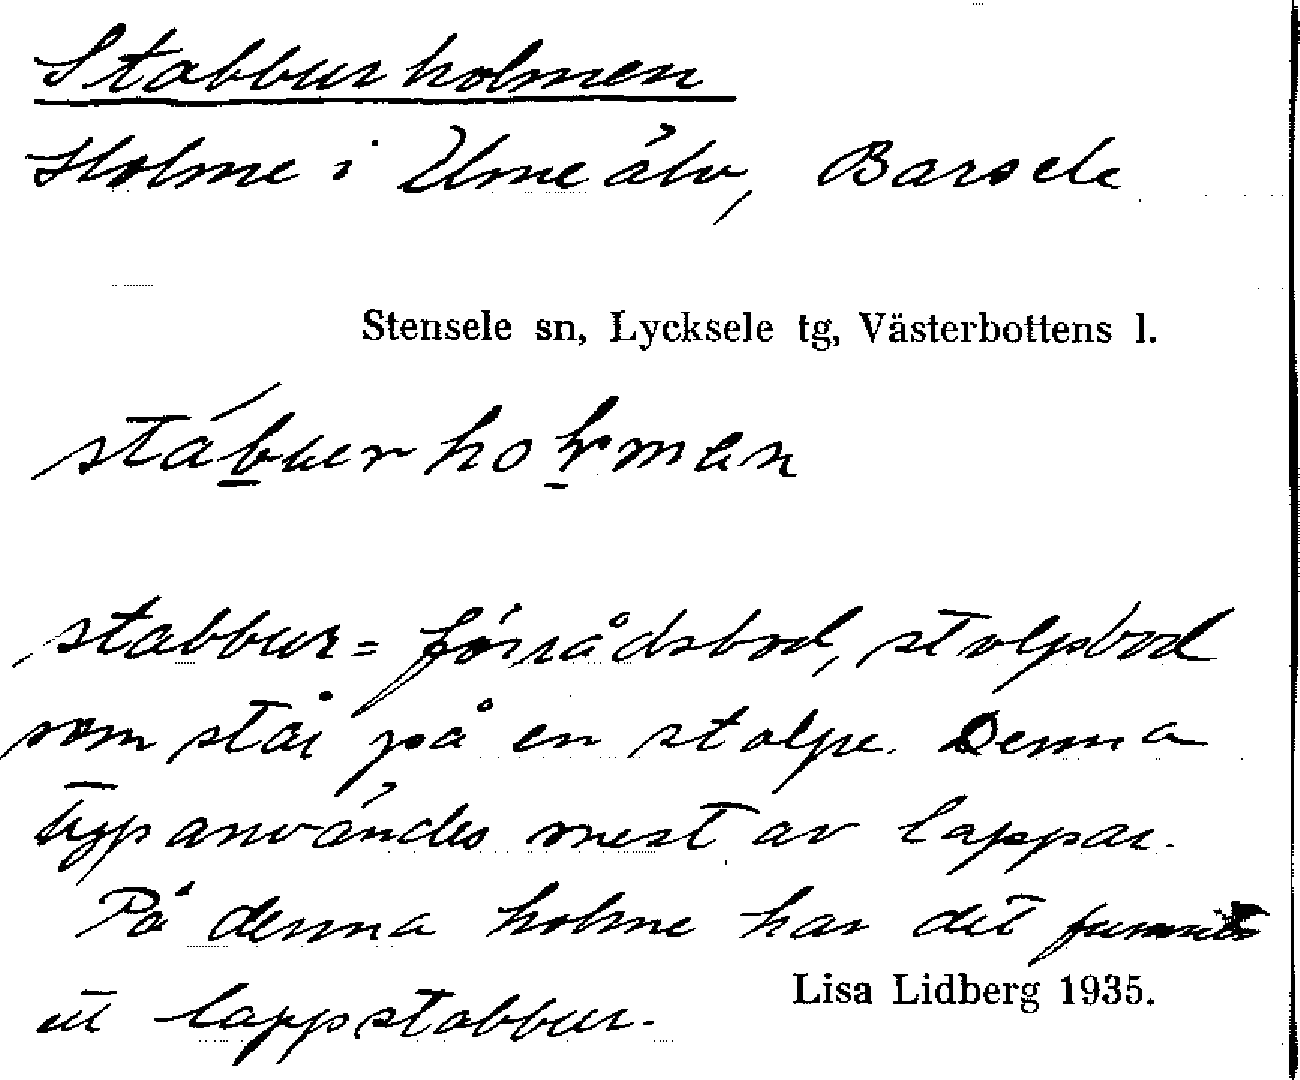 Stabburholmen
Holme i Ume älv, Barsele
Stensele sn, Lycksele tg, Västerbottens l.
stabbur = förrådsbod, stolpbod
som står på en stolpe. Denna
typ användes mest av lappar.
På denna holme har det funnits
ett lappstabbur.
Lisa Lidberg 1935.